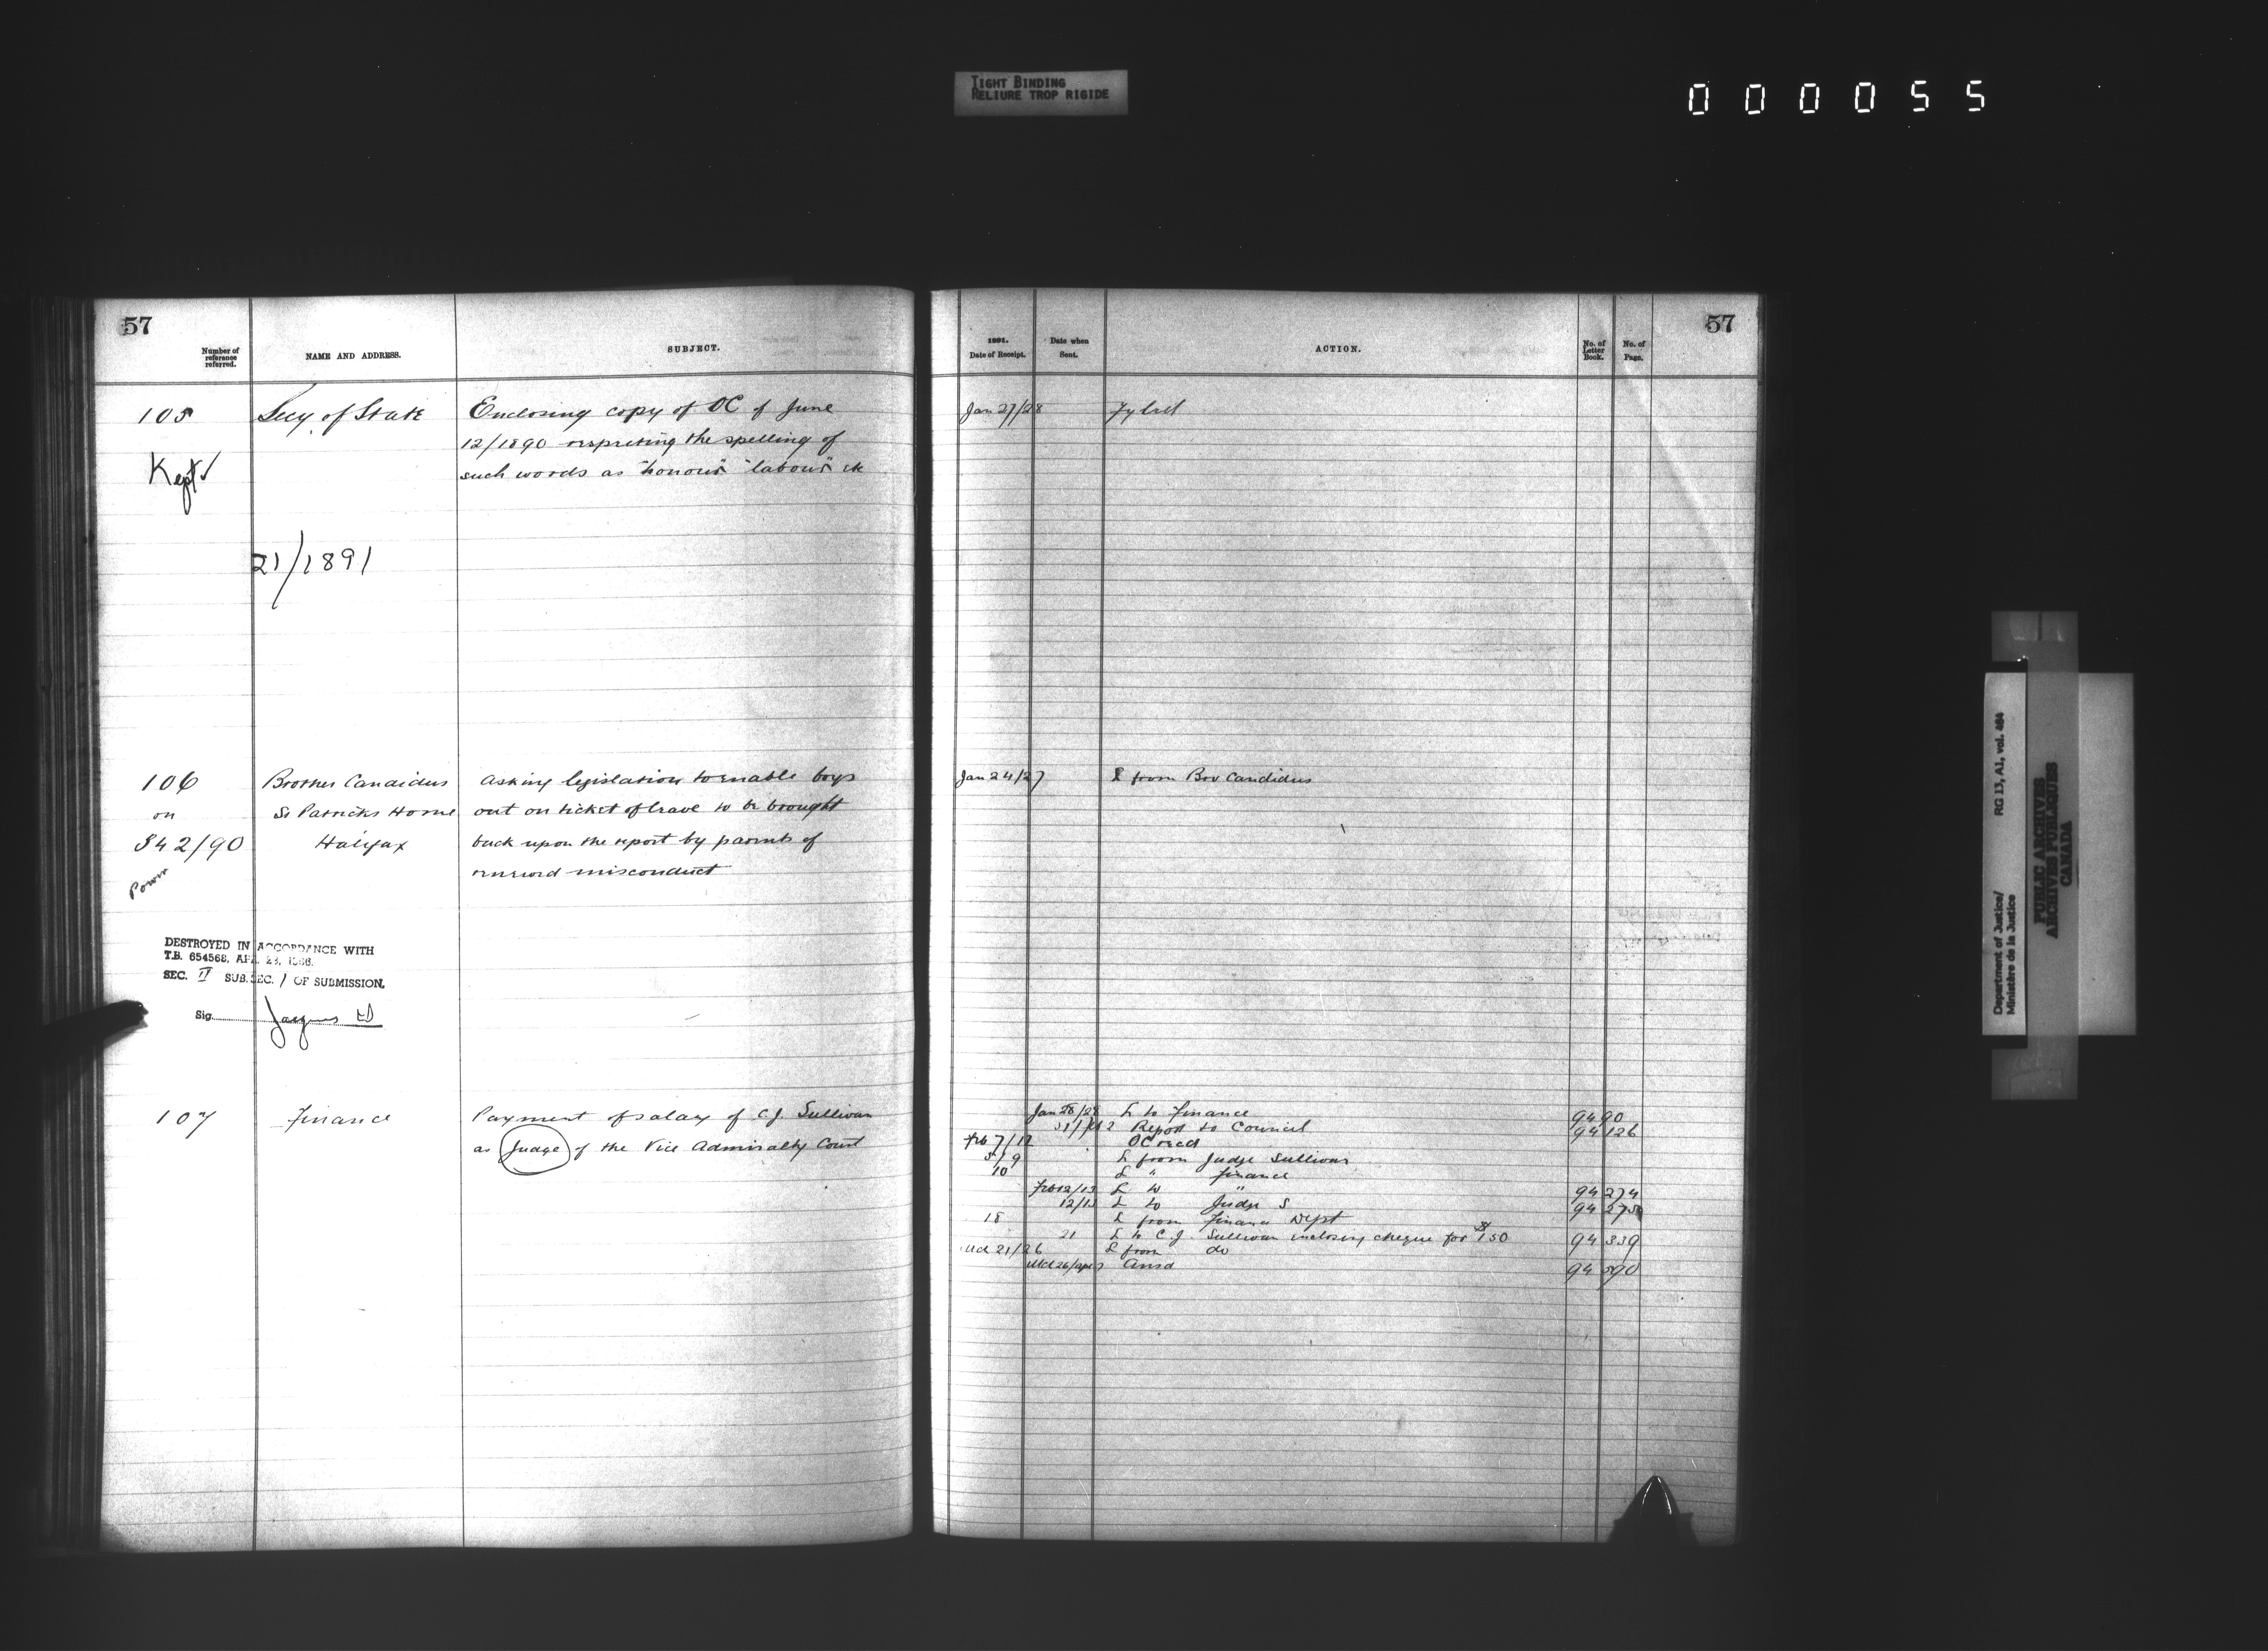 TIGHT BINDING
RELIURE TROP RIGIDE
000055
57
Number of reference referred.
NAME AND ADDRESS.
SUBJECT.
105
Secy. of State
Enclosing copy of OC of June
12/1890 respecting the spelling of
such words as "honour" "labour" etc
Kept
21/1891
106
on
842/90
Power
Brother Candidus
St Patricks Home
Halifax
asking legislation to enable boys
out on ticket of leave to be brought
back upon the report by parents of
renewed misconduct
DESTROYED IN ACCORDANCE WITH
T.B. 654568, APR. 28, 1966.
SEC. II SUB.SEC. 1 OF SUBMISSION.
Sig.
107
Finance
Payment of salary of C.J. Sullivan
as Judge of the Vice Admiralty Court
57
1891.
Date of Receipt.
Date when Sent.
ACTION.
No. of Letter Book.
No. of Page.
Jan 27/28
Jan 24/27 L from Bro Candidus
Jan 28/28 L to Finance 94 90
Report to Council 94 126
Feb 7/12 OC recd
5/9 L from Judge Sullivan
10 L " Finance
Feb 12/13 L to " 94 274
12/13 L to Judge S 94
18 L from Finance Dept
21 L to C.J. Sullivan inclosing cheque for $150 94 339
Mch 21/26 L from do
Mch 26/Apl Ansd 94 590
Department of Justice/
Ministère de la Justice
RG 13, A1, vol. 484
PUBLIC ARCHIVES
ARCHIVES PUBLIQUES
CANADA